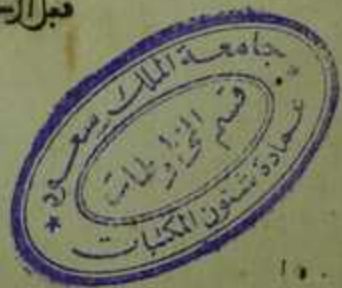 قبل
جامعة الملك سعود
قسم المخطوطات
عمادة شئون المكتبات